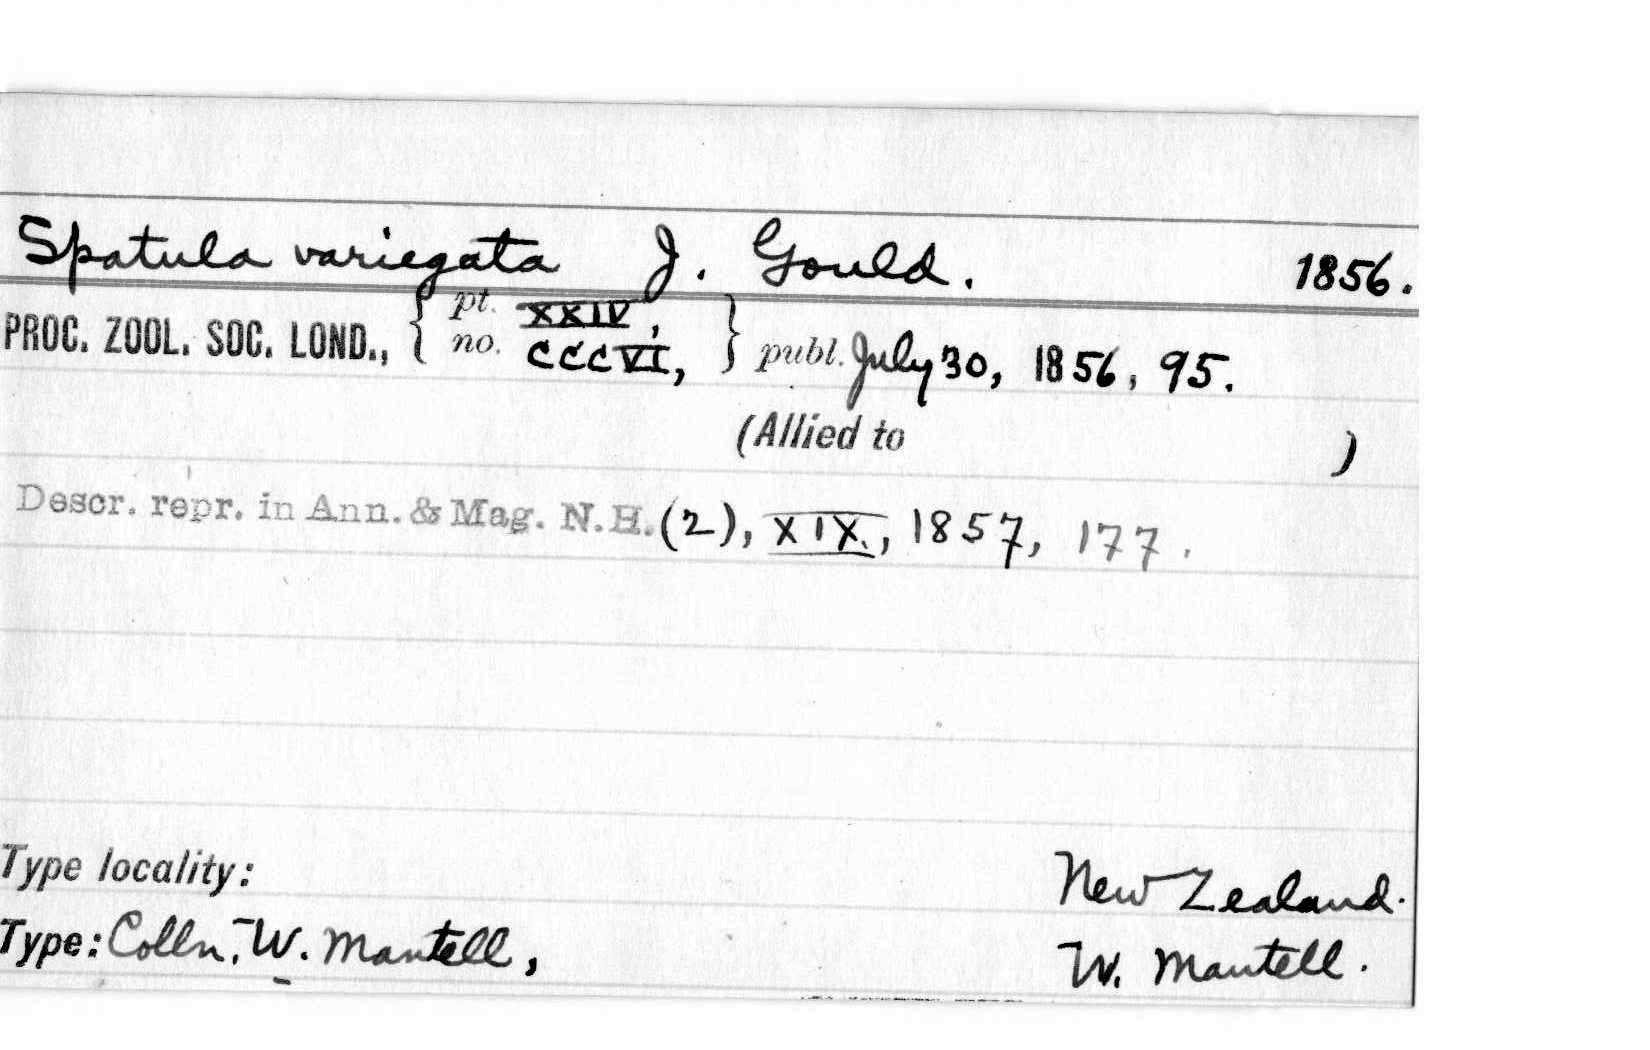 Spatula variegata J. Gould. 1856.
PROC. ZOOL. SOC. LOND., { pt. XXIV, no. CCCVI, } publ. July 30, 1856, 95.
(Allied to )
Descr. repr. in Ann. & Mag. N.H. (2), XIX., 1857, 177.
Type locality: New Zealand.
Type: Colln. W. Mantell, W. Mantell.